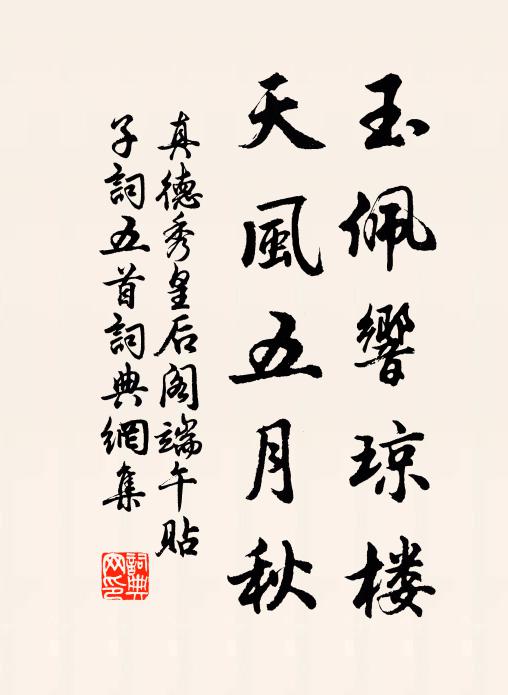 玉佩響琼楼
天風五月秋
真德秀皇后阁端午贴
子詞五首詞典網集
詞典
网印